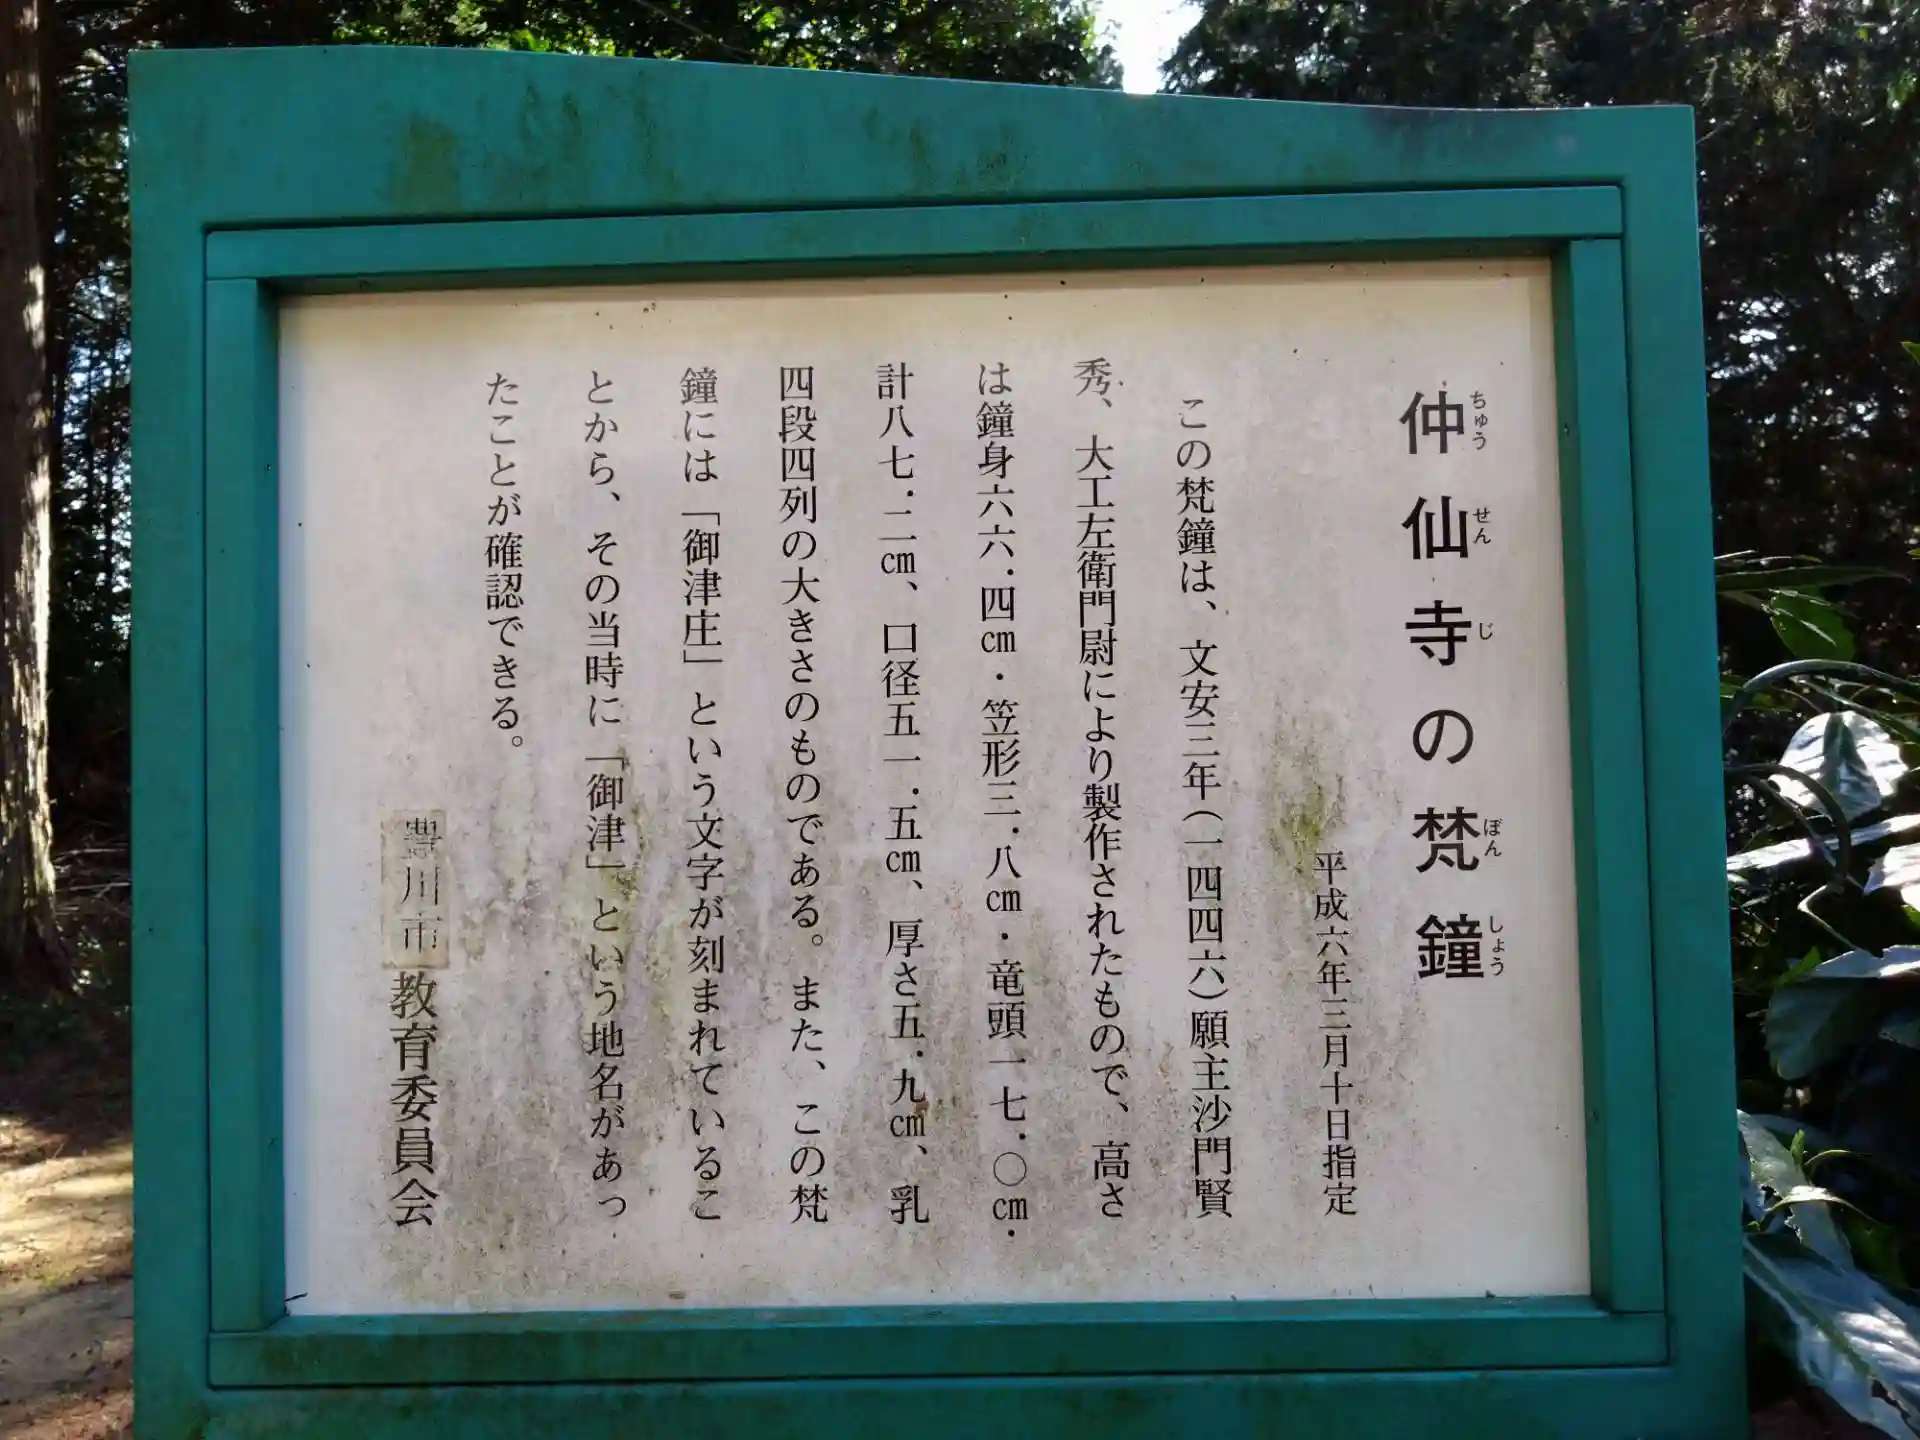 仲仙寺の梵鐘
ちゅう せん じ ぼん しょう
平成六年三月十日指定
この梵鐘は、文安三年(一四四六)願主沙門賢
秀、大工左衛門尉により製作されたもので、高さ
は鐘身六六.四㎝・笠形三.八㎝・竜頭一七.〇㎝・
計八七.二㎝、口径五一.五㎝、厚さ五.九㎝、乳
四段四列の大きさのものである。また、この梵
鐘には「御津庄」という文字が刻まれているこ
とから、その当時に「御津」という地名があっ
たことが確認できる。
豊川市教育委員会